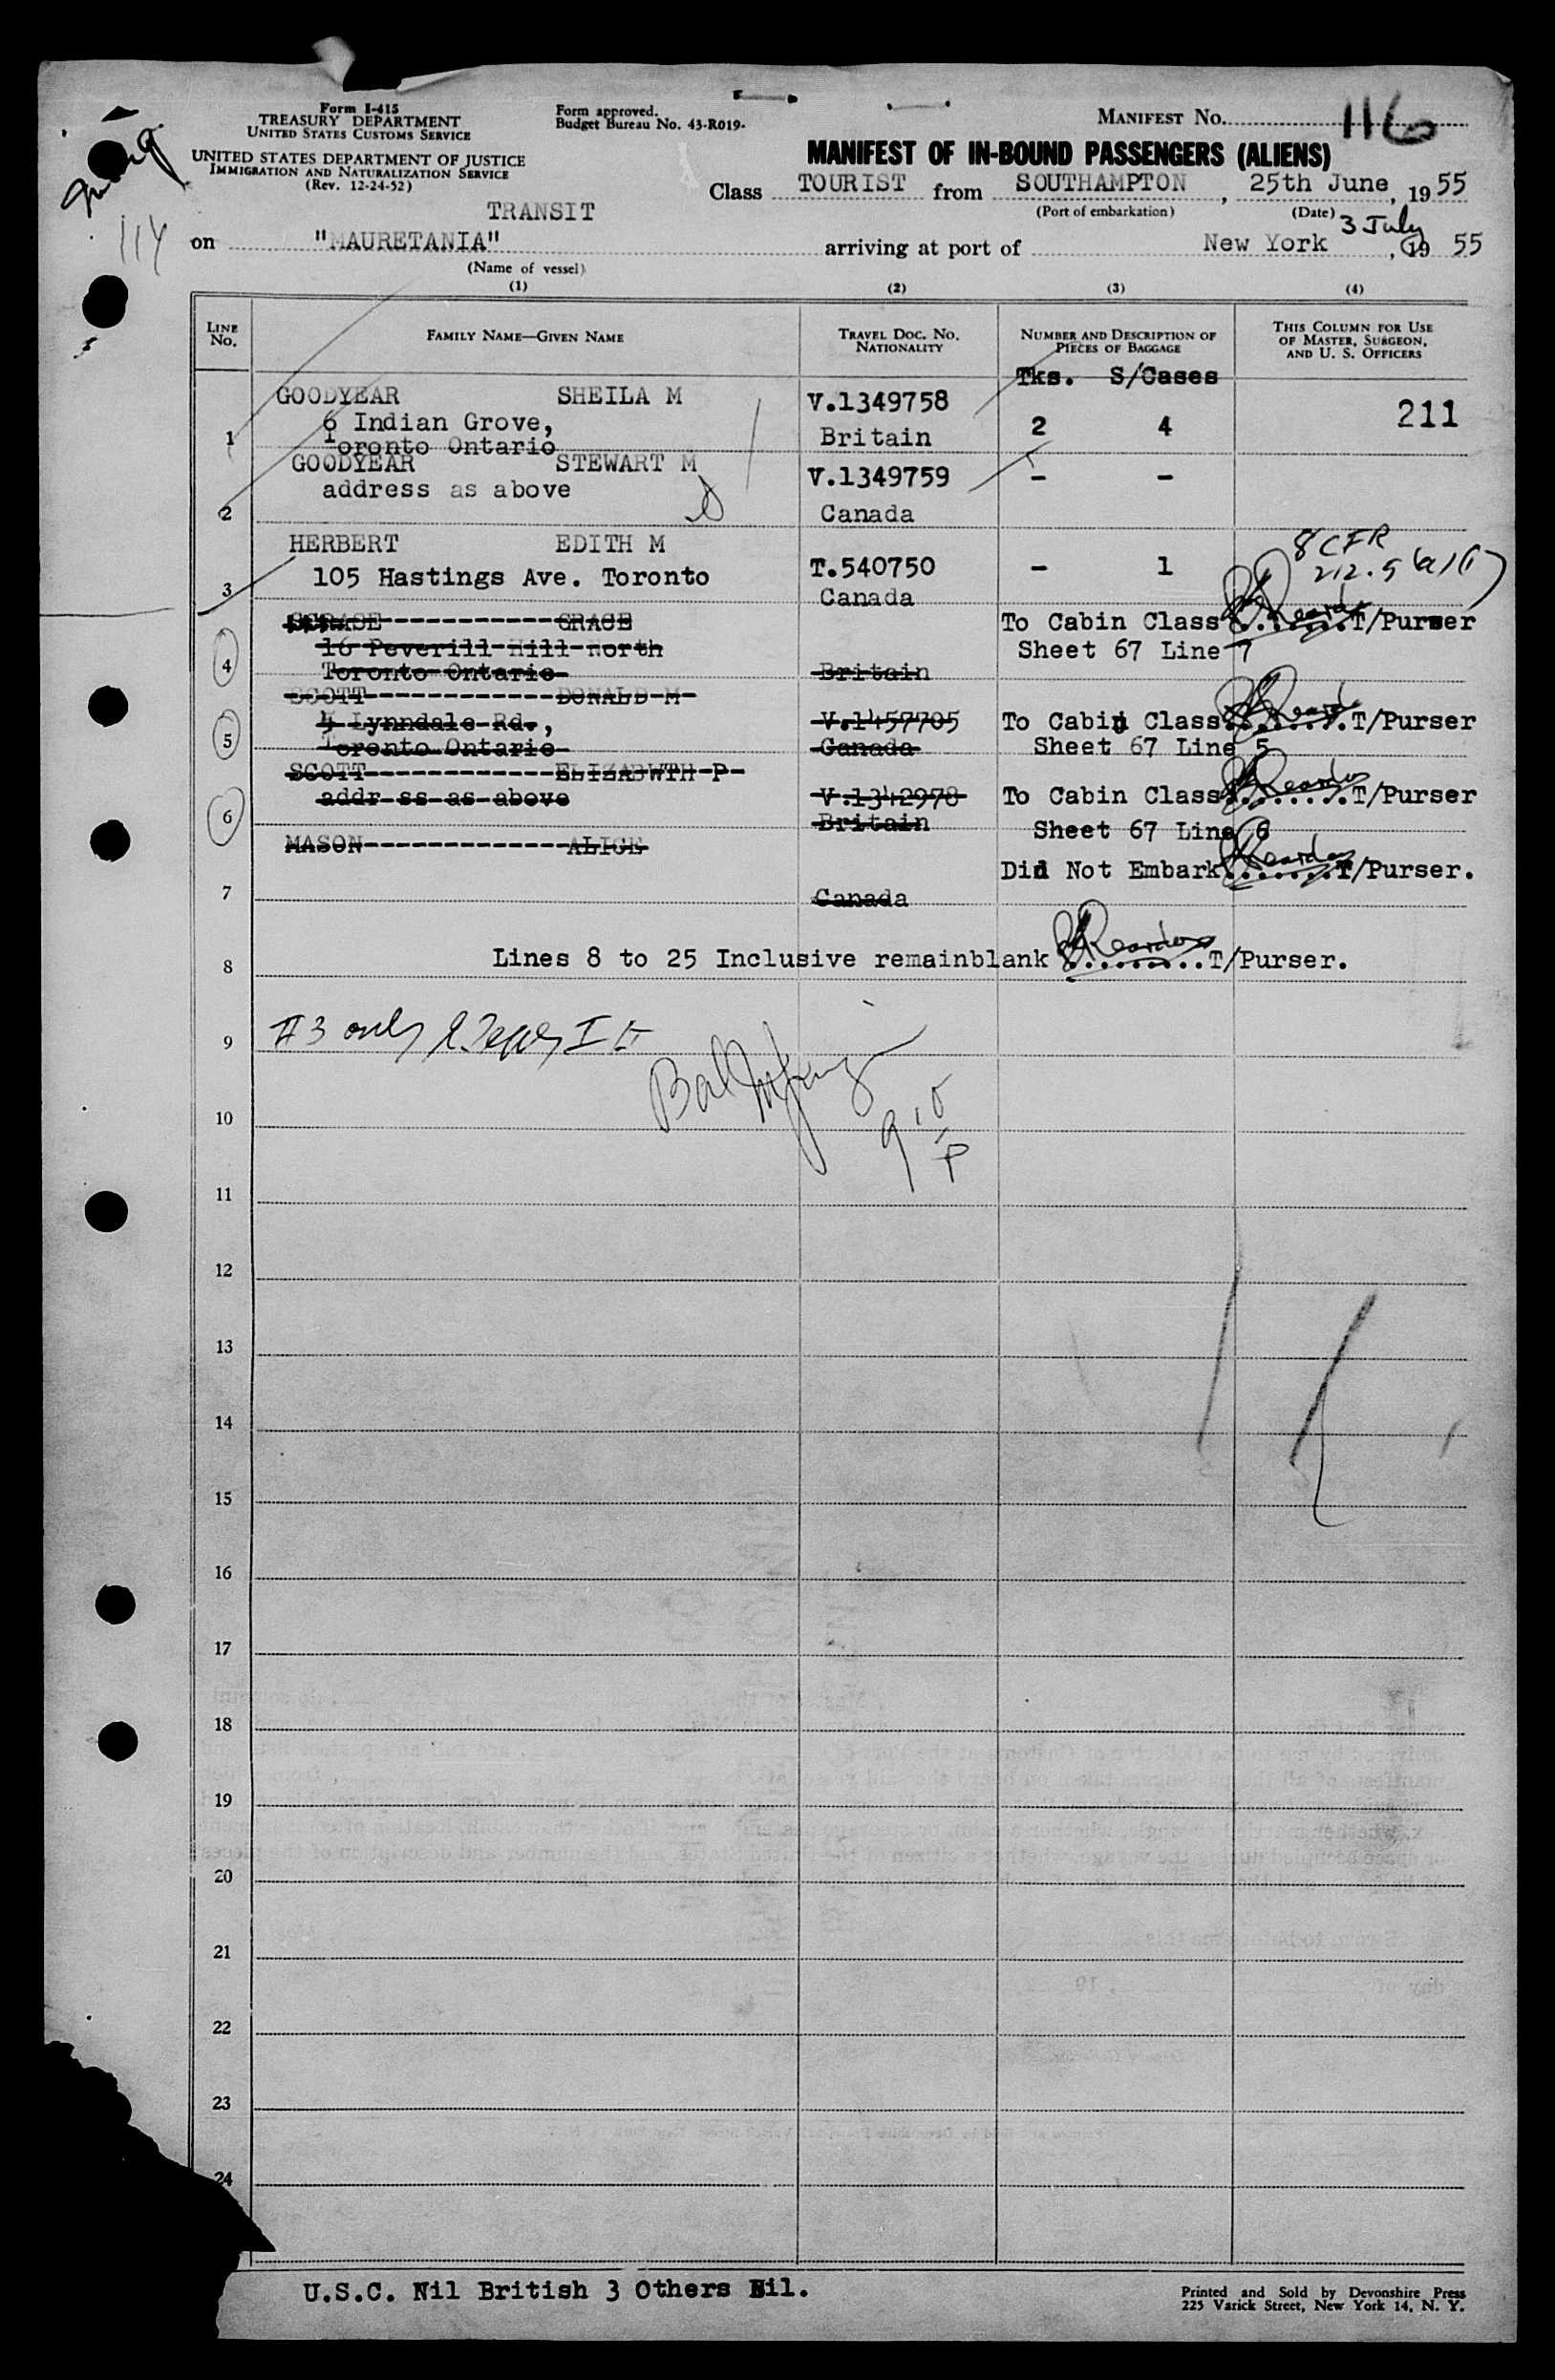 Form I-415
TREASURY DEPARTMENT
UNITED STATES CUSTOMS SERVICE
UNITED STATES DEPARTMENT OF JUSTICE
IMMIGRATION AND NATURALIZATION SERVICE
(Rev. 12-24-52)
Form approved.
Budget Bureau No. 43-R019.
MANIFEST NO. 116
MANIFEST OF IN-BOUND PASSENGERS (ALIENS)
Class TOURIST from SOUTHAMPTON, 25th June, 1955
(Port of embarkation) (Date)
114
TRANSIT
on "MAURETANIA" arriving at port of New York, 3 July 19 55
(Name of vessel)
(1) (2) (3) (4)
LINE NO.
FAMILY NAME—GIVEN NAME
TRAVEL DOC. NO. NATIONALITY
NUMBER AND DESCRIPTION OF PIECES OF BAGGAGE
THIS COLUMN FOR USE OF MASTER, SURGEON, AND U. S. OFFICERS
Tks. S/Cases
GOODYEAR SHEILA M V.1349758 211
6 Indian Grove,
1 Toronto Ontario Britain 2 4
GOODYEAR STEWART M V.1349759 - -
address as above
2 Canada
HERBERT EDITH M 8 CFR
105 Hastings Ave. Toronto T.540750 - 1 212.5(a)(1)
3 Canada
SCRASE------------GRACE To Cabin Class........T/Purser
16 Peverill Hill North Sheet 67 Line 7
4 Toronto Ontario Britain
SCOTT------------DONALD M-
4 Lynndale Rd., V.1457705 To Cabin Class........T/Purser
5 Toronto Ontario Canada Sheet 67 Line 5
SCOTT------------ELIZABWTH P-
addr ss as above V.1342978 To Cabin Class........T/Purser
6 Britain Sheet 67 Line 6
MASON-------------ALICE
Did Not Embark.......T/Purser.
7 Canada
8 Lines 8 to 25 Inclusive remainblank .........T/Purser.
9 #3 only
10
11
12
13
14
15
16
17
18
19
20
21
22
23
24
U.S.C. Nil British 3 Others Nil.
Printed and Sold by Devonshire Press
225 Varick Street, New York 14, N. Y.